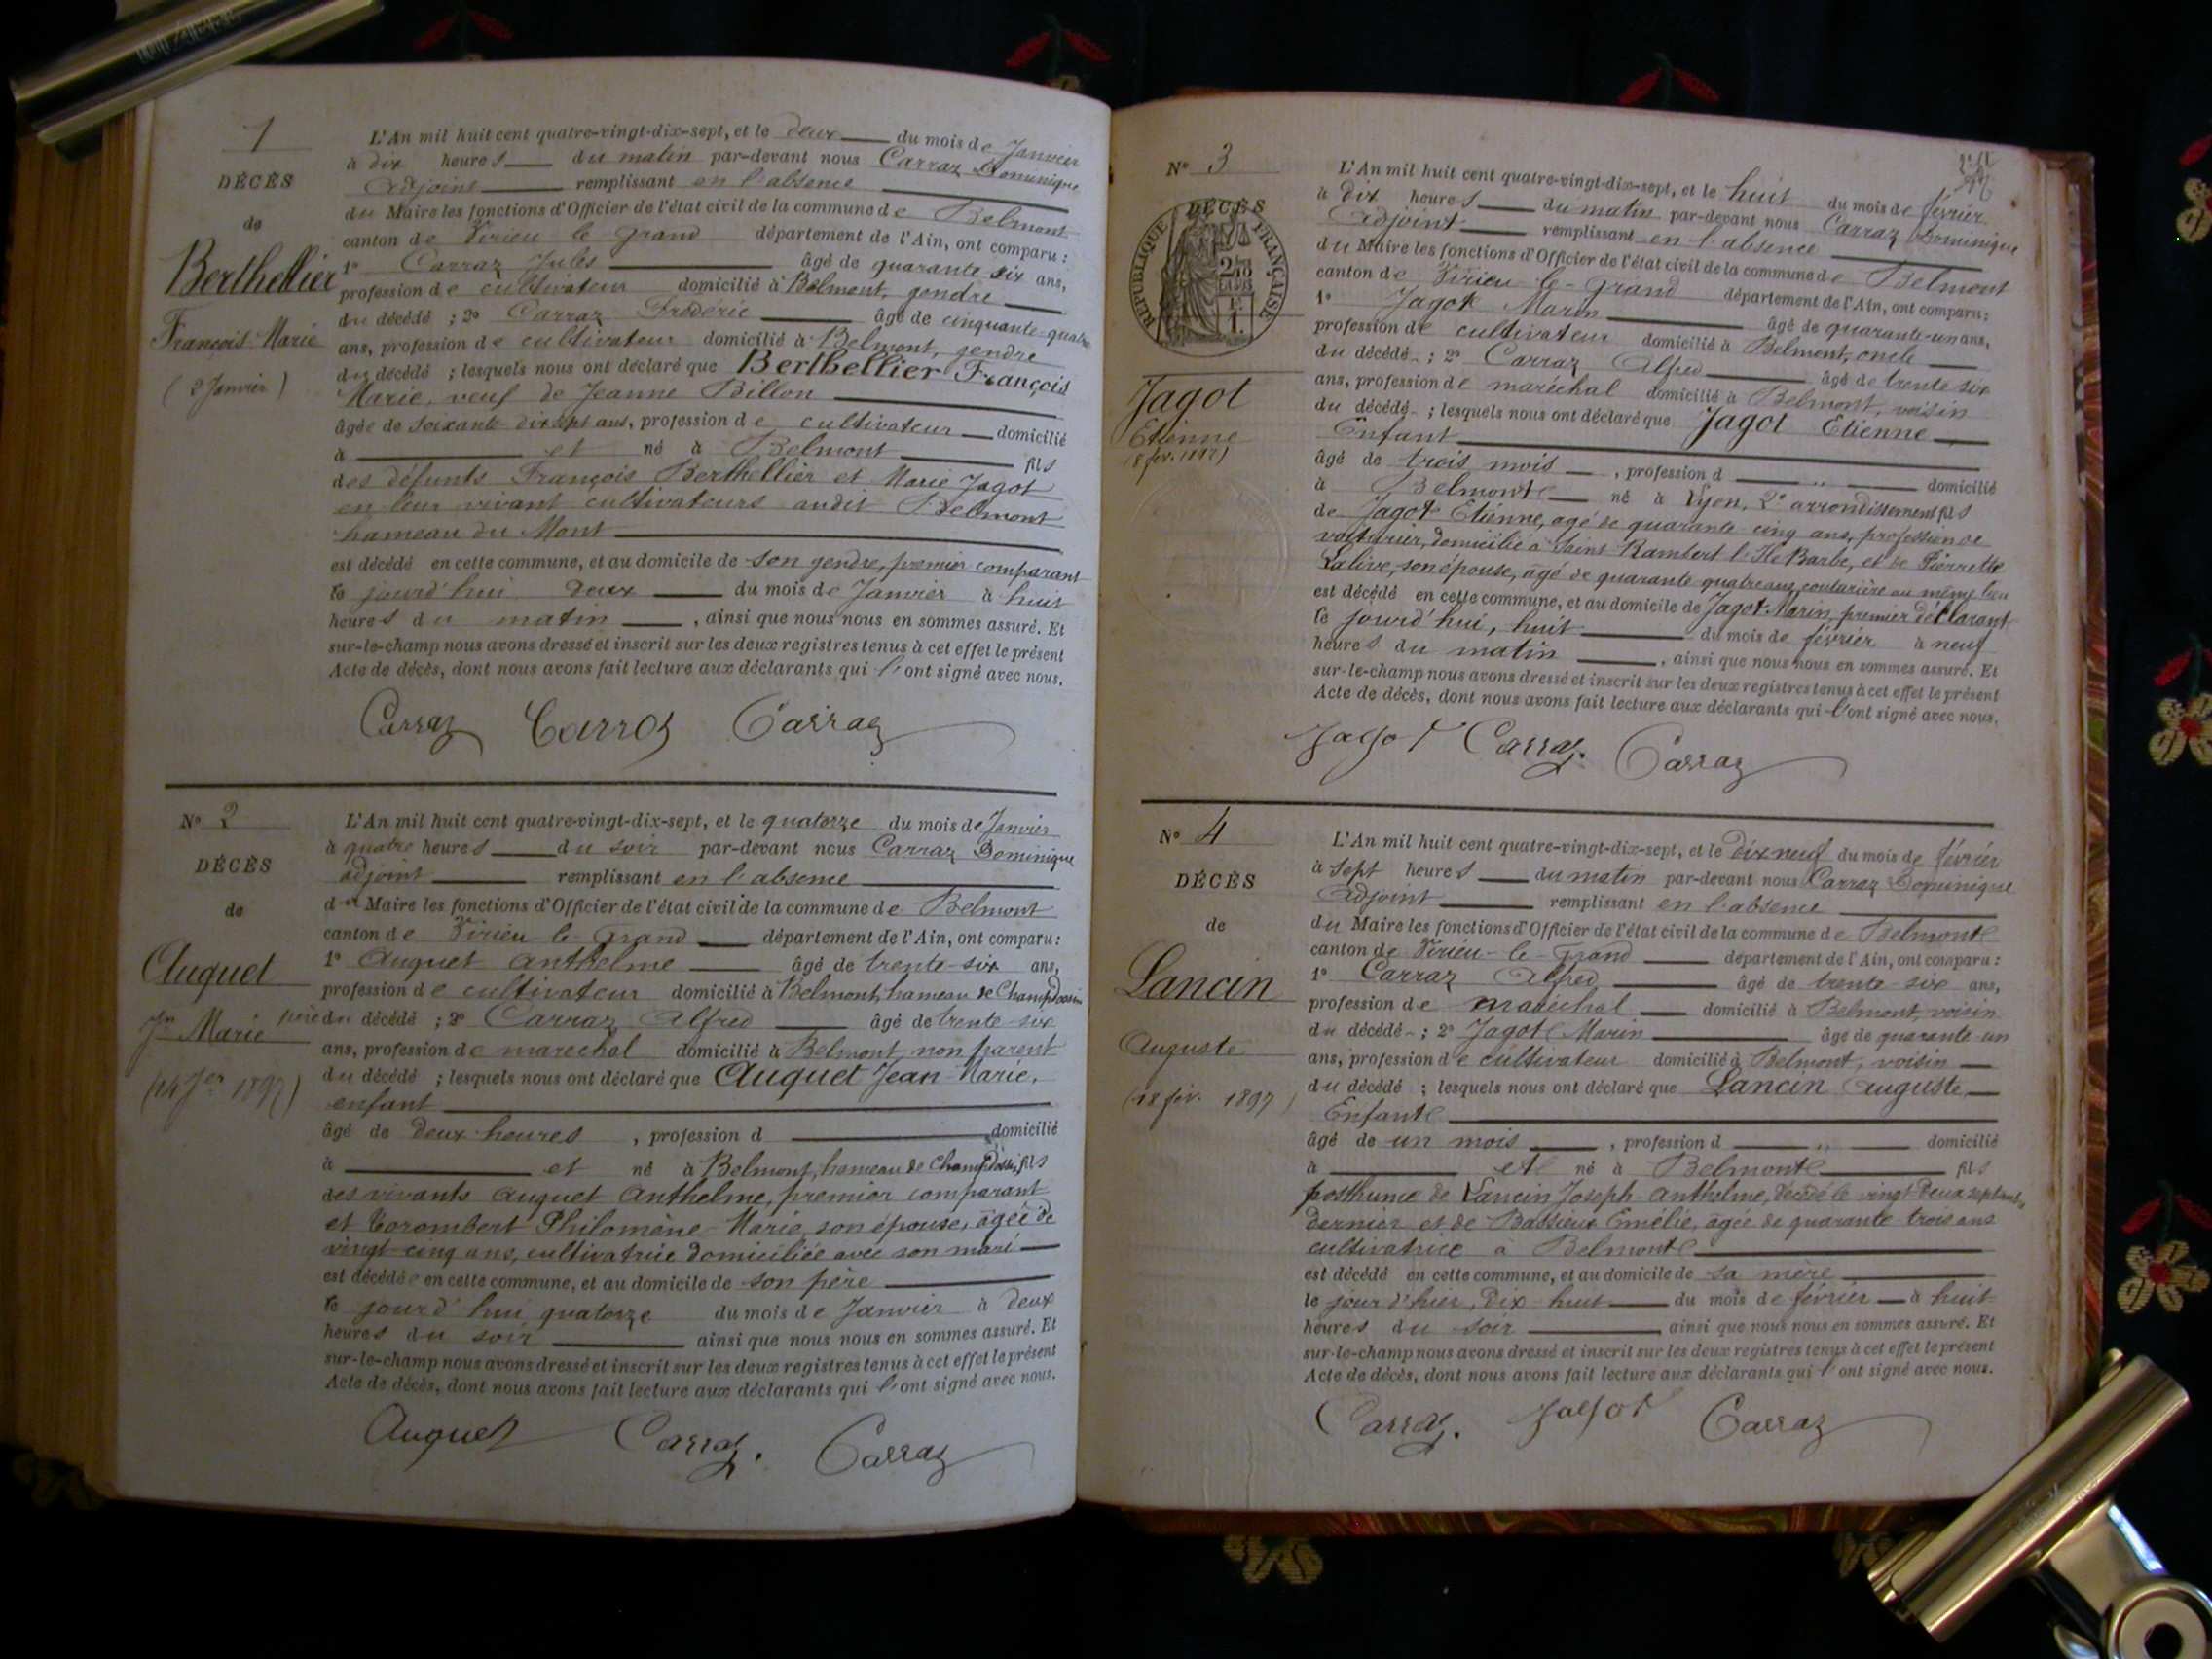 1
DÉCÈS
de
Berthellier
François Marie
(2 Janvier)
L'An mil huit cent quatre-vingt-dix-sept, et le deux du mois de Janvier
à dix heures du matin par-devant nous Carraz Dominique
Adjoint remplissant en l'absence
du Maire les fonctions d'Officier de l'état civil de la commune de Belmont
canton de Virieu le grand département de l'Ain, ont comparu :
1° Carraz Jules âgé de quarante six ans,
profession de cultivateur domicilié à Belmont, gendre
du décédé ; 2° Carraz Frédéric âgé de cinquante-quatre
ans, profession de cultivateur domicilié à Belmont, gendre
du décédé ; lesquels nous ont déclaré que Berthellier François
Marie, veuf de Jeanne Billon
âgé de soixante dix sept ans, profession de cultivateur domicilié
à et né à Belmont fils
des défunts François Berthellier et Marie Jagot
en leur vivant cultivateurs audit Belmont
hameau du Mont
est décédé en cette commune, et au domicile de son gendre, premier comparant
le jourd'hui deux du mois de Janvier à huit
heures du matin , ainsi que nous nous en sommes assuré. Et
sur-le-champ nous avons dressé et inscrit sur les deux registres tenus à cet effet le présent
Acte de décès, dont nous avons fait lecture aux déclarants qui l'ont signé avec nous.
Carraz Carraz Carraz
N° 2
DÉCÈS
de
Auquet
Jn Marie
(14 Jer 1897)
L'An mil huit cent quatre-vingt-dix-sept, et le quatorze du mois de Janvier
à quatre heures du soir par-devant nous Carraz Dominique
adjoint remplissant en l'absence
du Maire les fonctions d'Officier de l'état civil de la commune de Belmont
canton de Virieu le Grand département de l'Ain, ont comparu :
1° Auquet Anthelme âgé de trente-six ans,
profession de cultivateur domicilié à Belmont, hameau de Champdossin
père du décédé ; 2° Carraz Alfred âgé de trente-six
ans, profession de marechal domicilié à Belmont, non parent
du décédé ; lesquels nous ont déclaré que Auquet Jean-Marie,
enfant
âgé de deux heures , profession d domicilié
à et né à Belmont, hameau de fils
des vivants Auquet Anthelme, premier comparant
et Corombert Philomène-Marie, son épouse, âgée de
vingt-cinq ans, cultivatrice domiciliée avec son mari
est décédé en cette commune, et au domicile de son père
le jourd'hui quatorze du mois de Janvier à deux
heures du soir ainsi que nous nous en sommes assuré. Et
sur-le-champ nous avons dressé et inscrit sur les deux registres tenus à cet effet le présent
Acte de décès, dont nous avons fait lecture aux déclarants qui l'ont signé avec nous.
Auquet Carraz. Carraz
N° 3
DÉCÈS
RÉPUBLIQUE FRANÇAISE
Jagot
Etienne
(8 fév. 1897)
L'An mil huit cent quatre-vingt-dix-sept, et le huit du mois de février
à dix heures du matin par-devant nous Carraz Dominique
Adjoint remplissant en l'absence
du Maire les fonctions d'Officier de l'état civil de la commune de Belmont
canton de Virieu-le-grand département de l'Ain, ont comparu :
1° Jagot Marin âgé de quarante-un ans,
profession de cultivateur domicilié à Belmont, oncle
du décédé ; 2° Carraz Alfred âgé de trente six
ans, profession de maréchal domicilié à Belmont, voisin
du décédé ; lesquels nous ont déclaré que Jagot Etienne
Enfant
âgé de trois mois , profession d domicilié
à Belmont né à Lyon, 2e arrondissement fils
de Jagot Etienne, agé de quarante cinq ans, profession de
voiturier, domicilié à Saint-Rambert l'Ile Barbe, et de Pierrette
Lalive, son épouse, âgé de quarante quatre ans, couturière au même lieu
est décédé en cette commune, et au domicile de Jagot Marin, premier déclarant
le jourd'hui, huit du mois de février à neuf
heures du matin , ainsi que nous nous en sommes assuré. Et
sur-le-champ nous avons dressé et inscrit sur les deux registres tenus à cet effet le présent
Acte de décès, dont nous avons fait lecture aux déclarants qui l'ont signé avec nous.
Jagot Carraz. Carraz
N° 4
DÉCÈS
de
Lancin
Auguste
(18 fév. 1897)
L'An mil huit cent quatre-vingt-dix-sept, et le dix neuf du mois de février
à sept heures du matin par-devant nous Carraz Dominique
Adjoint remplissant en l'absence
du Maire les fonctions d'Officier de l'état civil de la commune de Belmont
canton de Virieu-le-Grand département de l'Ain, ont comparu :
1° Carraz Alfred âgé de trente-six ans,
profession de maréchal domicilié à Belmont, voisin
du décédé ; 2° Jagot Marin âgé de quarante un
ans, profession de cultivateur domicilié à Belmont, voisin
du décédé ; lesquels nous ont déclaré que Lancin Auguste
Enfant
âgé de un mois , profession d domicilié
à et né à Belmont fils
posthume de Lancin Joseph-Anthelme, décédé le vingt deux septembre
dernier et de Bassieux Emélie, âgée de quarante trois ans
cultivatrice à Belmont
est décédé en cette commune, et au domicile de sa mère
le jour d'hier, dix-huit du mois de février à huit
heures du soir ainsi que nous nous en sommes assuré. Et
sur-le-champ nous avons dressé et inscrit sur les deux registres tenus à cet effet le présent
Acte de décès, dont nous avons fait lecture aux déclarants qui l'ont signé avec nous.
Carraz. Jagot Carraz